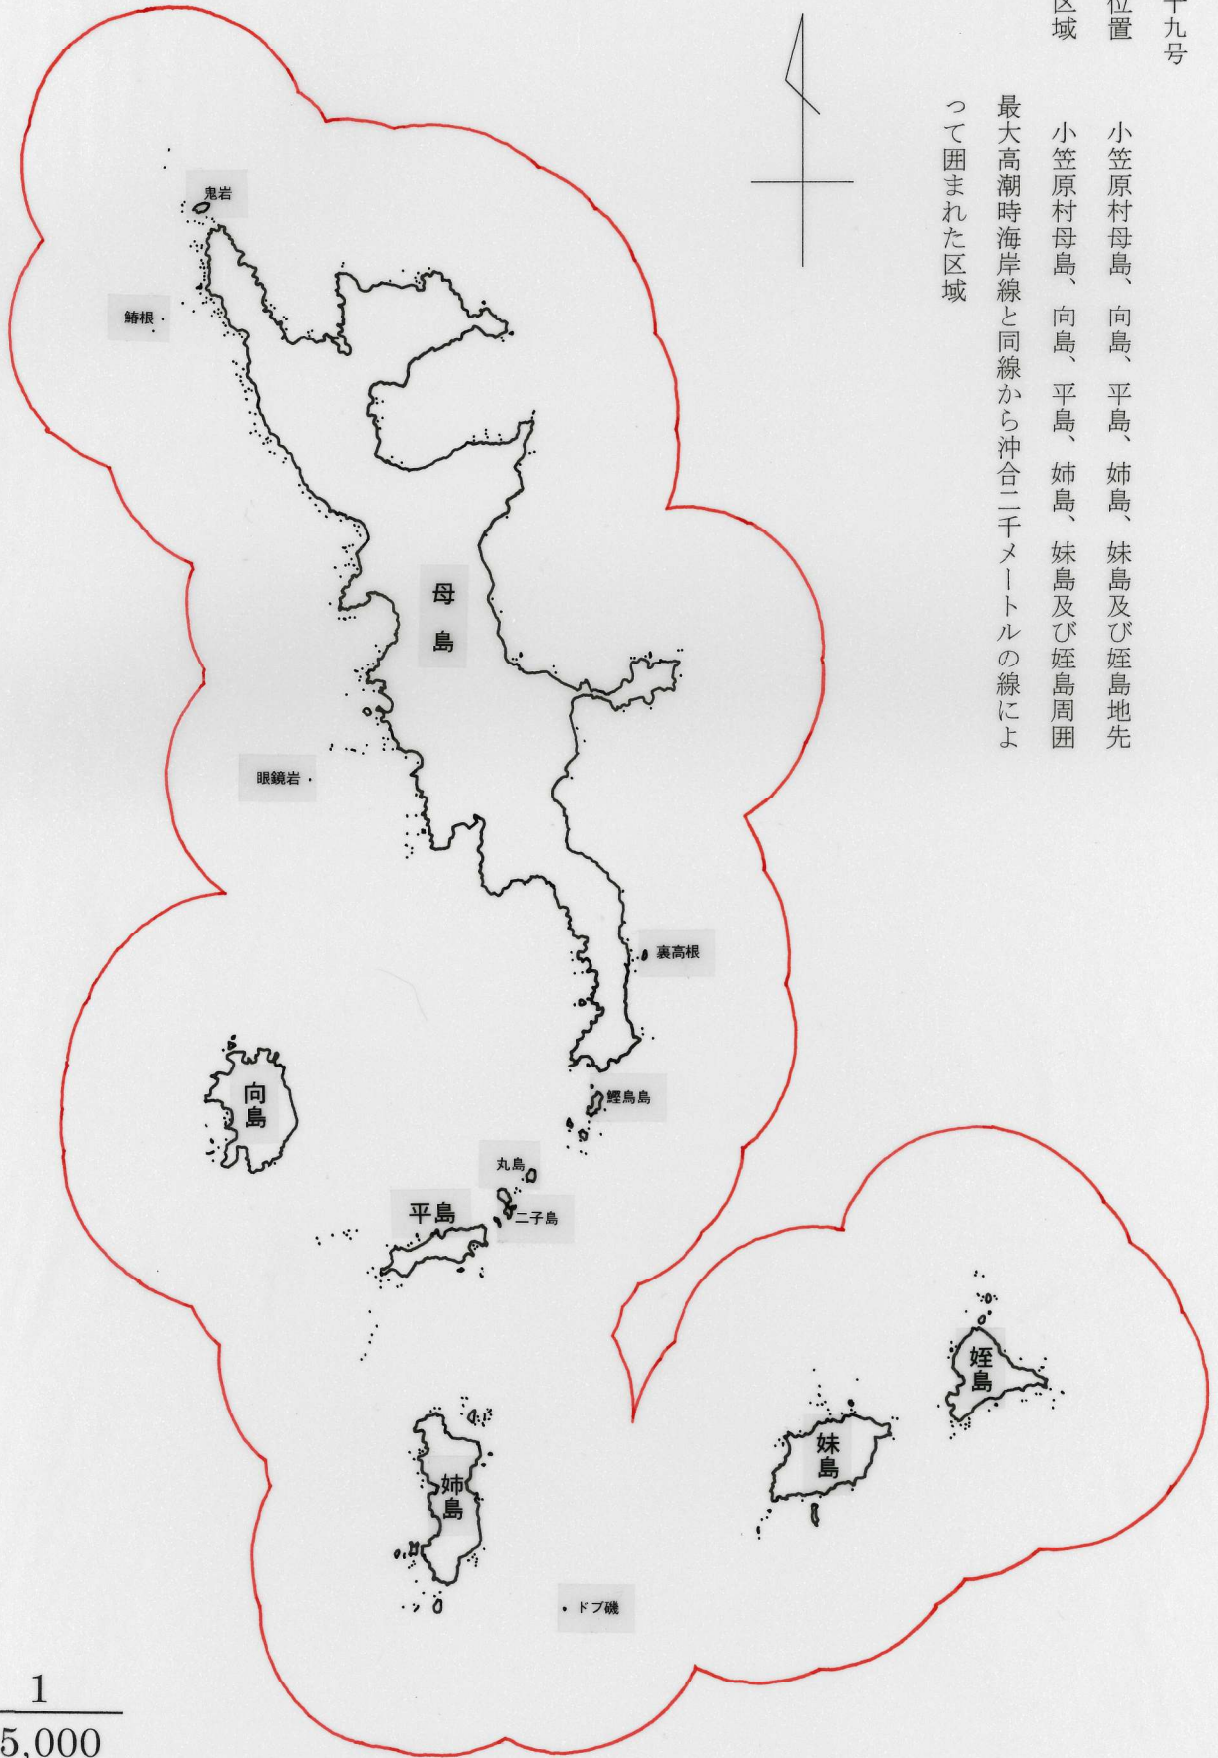 十九号
位置　小笠原村母島、向島、平島、姉島、妹島及び姪島地先
区域　小笠原村母島、向島、平島、姉島、妹島及び姪島周囲
最大高潮時海岸線と同線から沖合二千メートルの線によ
って囲まれた区域
鬼岩
鰆根
母島
眼鏡岩
裏高根
向島
鰹鳥島
丸島
平島
二子島
姪島
妹島
姉島
ドブ磯
1
5,000